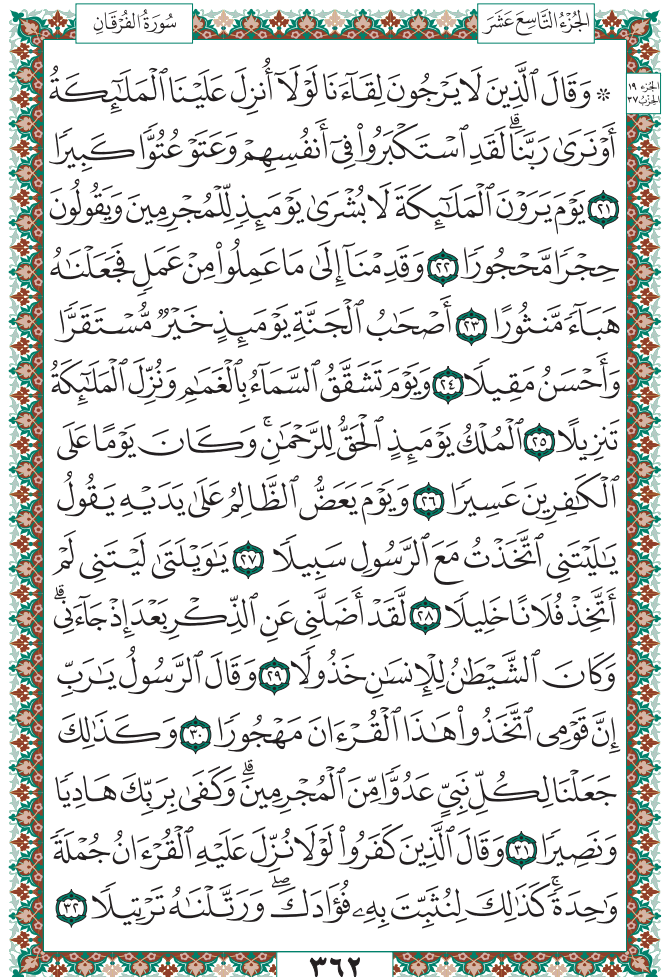 الجُزْءُ التَّاسِعَ عَشَرَ
سُورَةُ الفُرْقَانِ
الجزء ١٩
الحزب ٣٧
۞ وَقَالَ ٱلَّذِينَ لَا يَرْجُونَ لِقَآءَنَا لَوْلَآ أُنزِلَ عَلَيْنَا ٱلْمَلَـٰٓئِكَةُ
أَوْ نَرَىٰ رَبَّنَاۗ لَقَدِ ٱسْتَكْبَرُوا۟ فِىٓ أَنفُسِهِمْ وَعَتَوْ عُتُوًّا كَبِيرًا
٢١ يَوْمَ يَرَوْنَ ٱلْمَلَـٰٓئِكَةَ لَا بُشْرَىٰ يَوْمَئِذٍ لِّلْمُجْرِمِينَ وَيَقُولُونَ
حِجْرًا مَّحْجُورًا ٢٢ وَقَدِمْنَآ إِلَىٰ مَا عَمِلُوا۟ مِنْ عَمَلٍ فَجَعَلْنَـٰهُ
هَبَآءً مَّنثُورًا ٢٣ أَصْحَـٰبُ ٱلْجَنَّةِ يَوْمَئِذٍ خَيْرٌ مُّسْتَقَرًّا
وَأَحْسَنُ مَقِيلًا ٢٤ وَيَوْمَ تَشَقَّقُ ٱلسَّمَآءُ بِٱلْغَمَـٰمِ وَنُزِّلَ ٱلْمَلَـٰٓئِكَةُ
تَنزِيلًا ٢٥ ٱلْمُلْكُ يَوْمَئِذٍ ٱلْحَقُّ لِلرَّحْمَـٰنِۚ وَكَانَ يَوْمًا عَلَى
ٱلْكَـٰفِرِينَ عَسِيرًا ٢٦ وَيَوْمَ يَعَضُّ ٱلظَّالِمُ عَلَىٰ يَدَيْهِ يَقُولُ
يَـٰلَيْتَنِى ٱتَّخَذْتُ مَعَ ٱلرَّسُولِ سَبِيلًا ٢٧ يَـٰوَيْلَتَىٰ لَيْتَنِى لَمْ
أَتَّخِذْ فُلَانًا خَلِيلًا ٢٨ لَّقَدْ أَضَلَّنِى عَنِ ٱلذِّكْرِ بَعْدَ إِذْ جَآءَنِىۗ
وَكَانَ ٱلشَّيْطَـٰنُ لِلْإِنسَـٰنِ خَذُولًا ٢٩ وَقَالَ ٱلرَّسُولُ يَـٰرَبِّ
إِنَّ قَوْمِى ٱتَّخَذُوا۟ هَـٰذَا ٱلْقُرْءَانَ مَهْجُورًا ٣٠ وَكَذَٰلِكَ
جَعَلْنَا لِكُلِّ نَبِىٍّ عَدُوًّا مِّنَ ٱلْمُجْرِمِينَۗ وَكَفَىٰ بِرَبِّكَ هَادِيًا
وَنَصِيرًا ٣١ وَقَالَ ٱلَّذِينَ كَفَرُوا۟ لَوْلَا نُزِّلَ عَلَيْهِ ٱلْقُرْءَانُ جُمْلَةً
وَٰحِدَةًۚ كَذَٰلِكَ لِنُثَبِّتَ بِهِۦ فُؤَادَكَۖ وَرَتَّلْنَـٰهُ تَرْتِيلًا ٣٢
٣٦٢